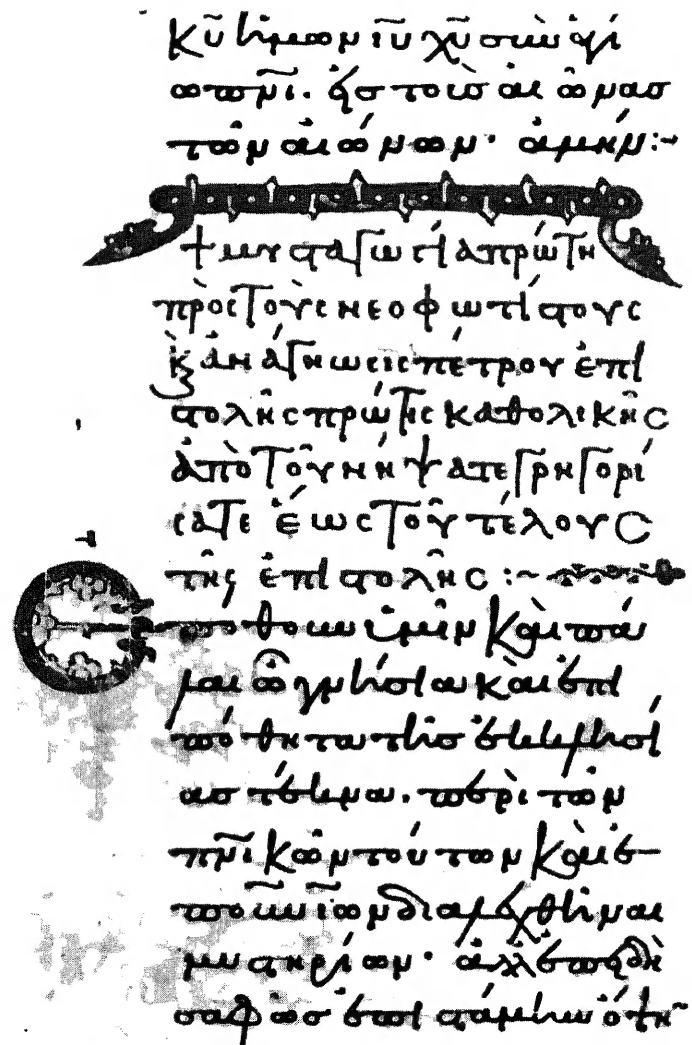 κῡ ἡμῶν ιῡ χῡ σὺν ἁγί
ω πν̄ι. εἰς τοὺς αἰῶνασ
τῶν αἰώνων· ἀμήν:-
+ μυσταγωγία πρώτη
πρὸς τοὺς νεοφωτίστους
κ ἀνάγνωσις πέτρου ἐπι
στολῆς πρώτης καθολικῆς
ἀπὸ τοῦ νήψατε γρηγορί
σατε ἕως τοῦ τέλους
τῆς ἐπιστολῆς :~
Ἐπόθουν ὑμῖν καὶ πά
λαι ὦ γνήσια καὶ ἐπι
πόθητα τῆσ ἐκκλησί
ασ τέκνα. περὶ τῶν
πν̄ικῶν τούτων καὶ ἐ
πουν̄ίων διαλεχθῆναι
μυστηρίων· ἀλλ' ἐπειδὴ
σαφῶσ ἐπιστάμην